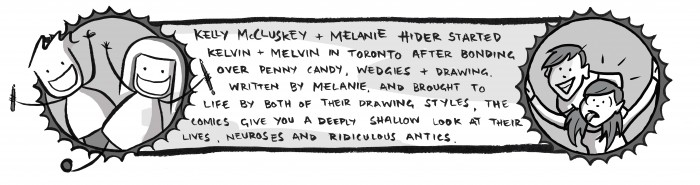 KELLY McCLUSKEY + MELANIE HIDER STARTED
KELVIN + MELVIN IN TORONTO AFTER BONDING
OVER PENNY CANDY, WEDGIES + DRAWING.
WRITTEN BY MELANIE, AND BROUGHT TO
LIFE BY BOTH OF THEIR DRAWING STYLES, THE
COMICS GIVE YOU A DEEPLY SHALLOW LOOK AT THEIR
LIVES, NEUROSES AND RIDICULOUS ANTICS.